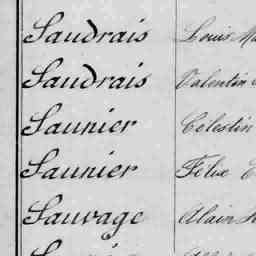 Saudrais Louis
Saudrais Valentin
Saunier Célestin
Saunier Félix
Sauvage Alain